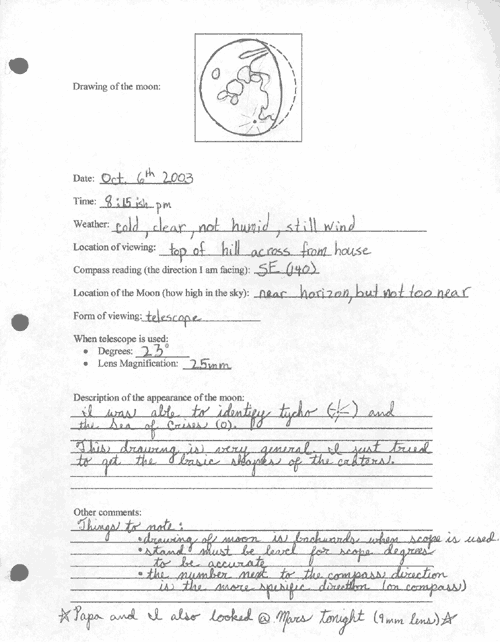 Drawing of the moon:
Date: Oct. 6th 2003
Time: 8:15 ish pm
Weather: cold, clear, not humid, still wind
Location of viewing: top of hill across from house
Compass reading (the direction I am facing): SE (140)
Location of the Moon (how high in the sky): near horizon, but not too near
Form of viewing: telescope
When telescope is used:
• Degrees: 23°
• Lens Magnification: 25mm
Description of the appearance of the moon:
I was able to identify tycho ( ) and
the Sea of Crises (0).
This drawing is very general. I just tried
to get the basic shapes of the craters.
Other comments:
Things to note:
• drawing of moon is backwards when scope is used
• stand must be level for scope degrees
to be accurate
• the number next to the compass direction
is the more spesific direction (on compass)
☆ Papa and I also looked @ Mars tonight (9mm lens) ☆